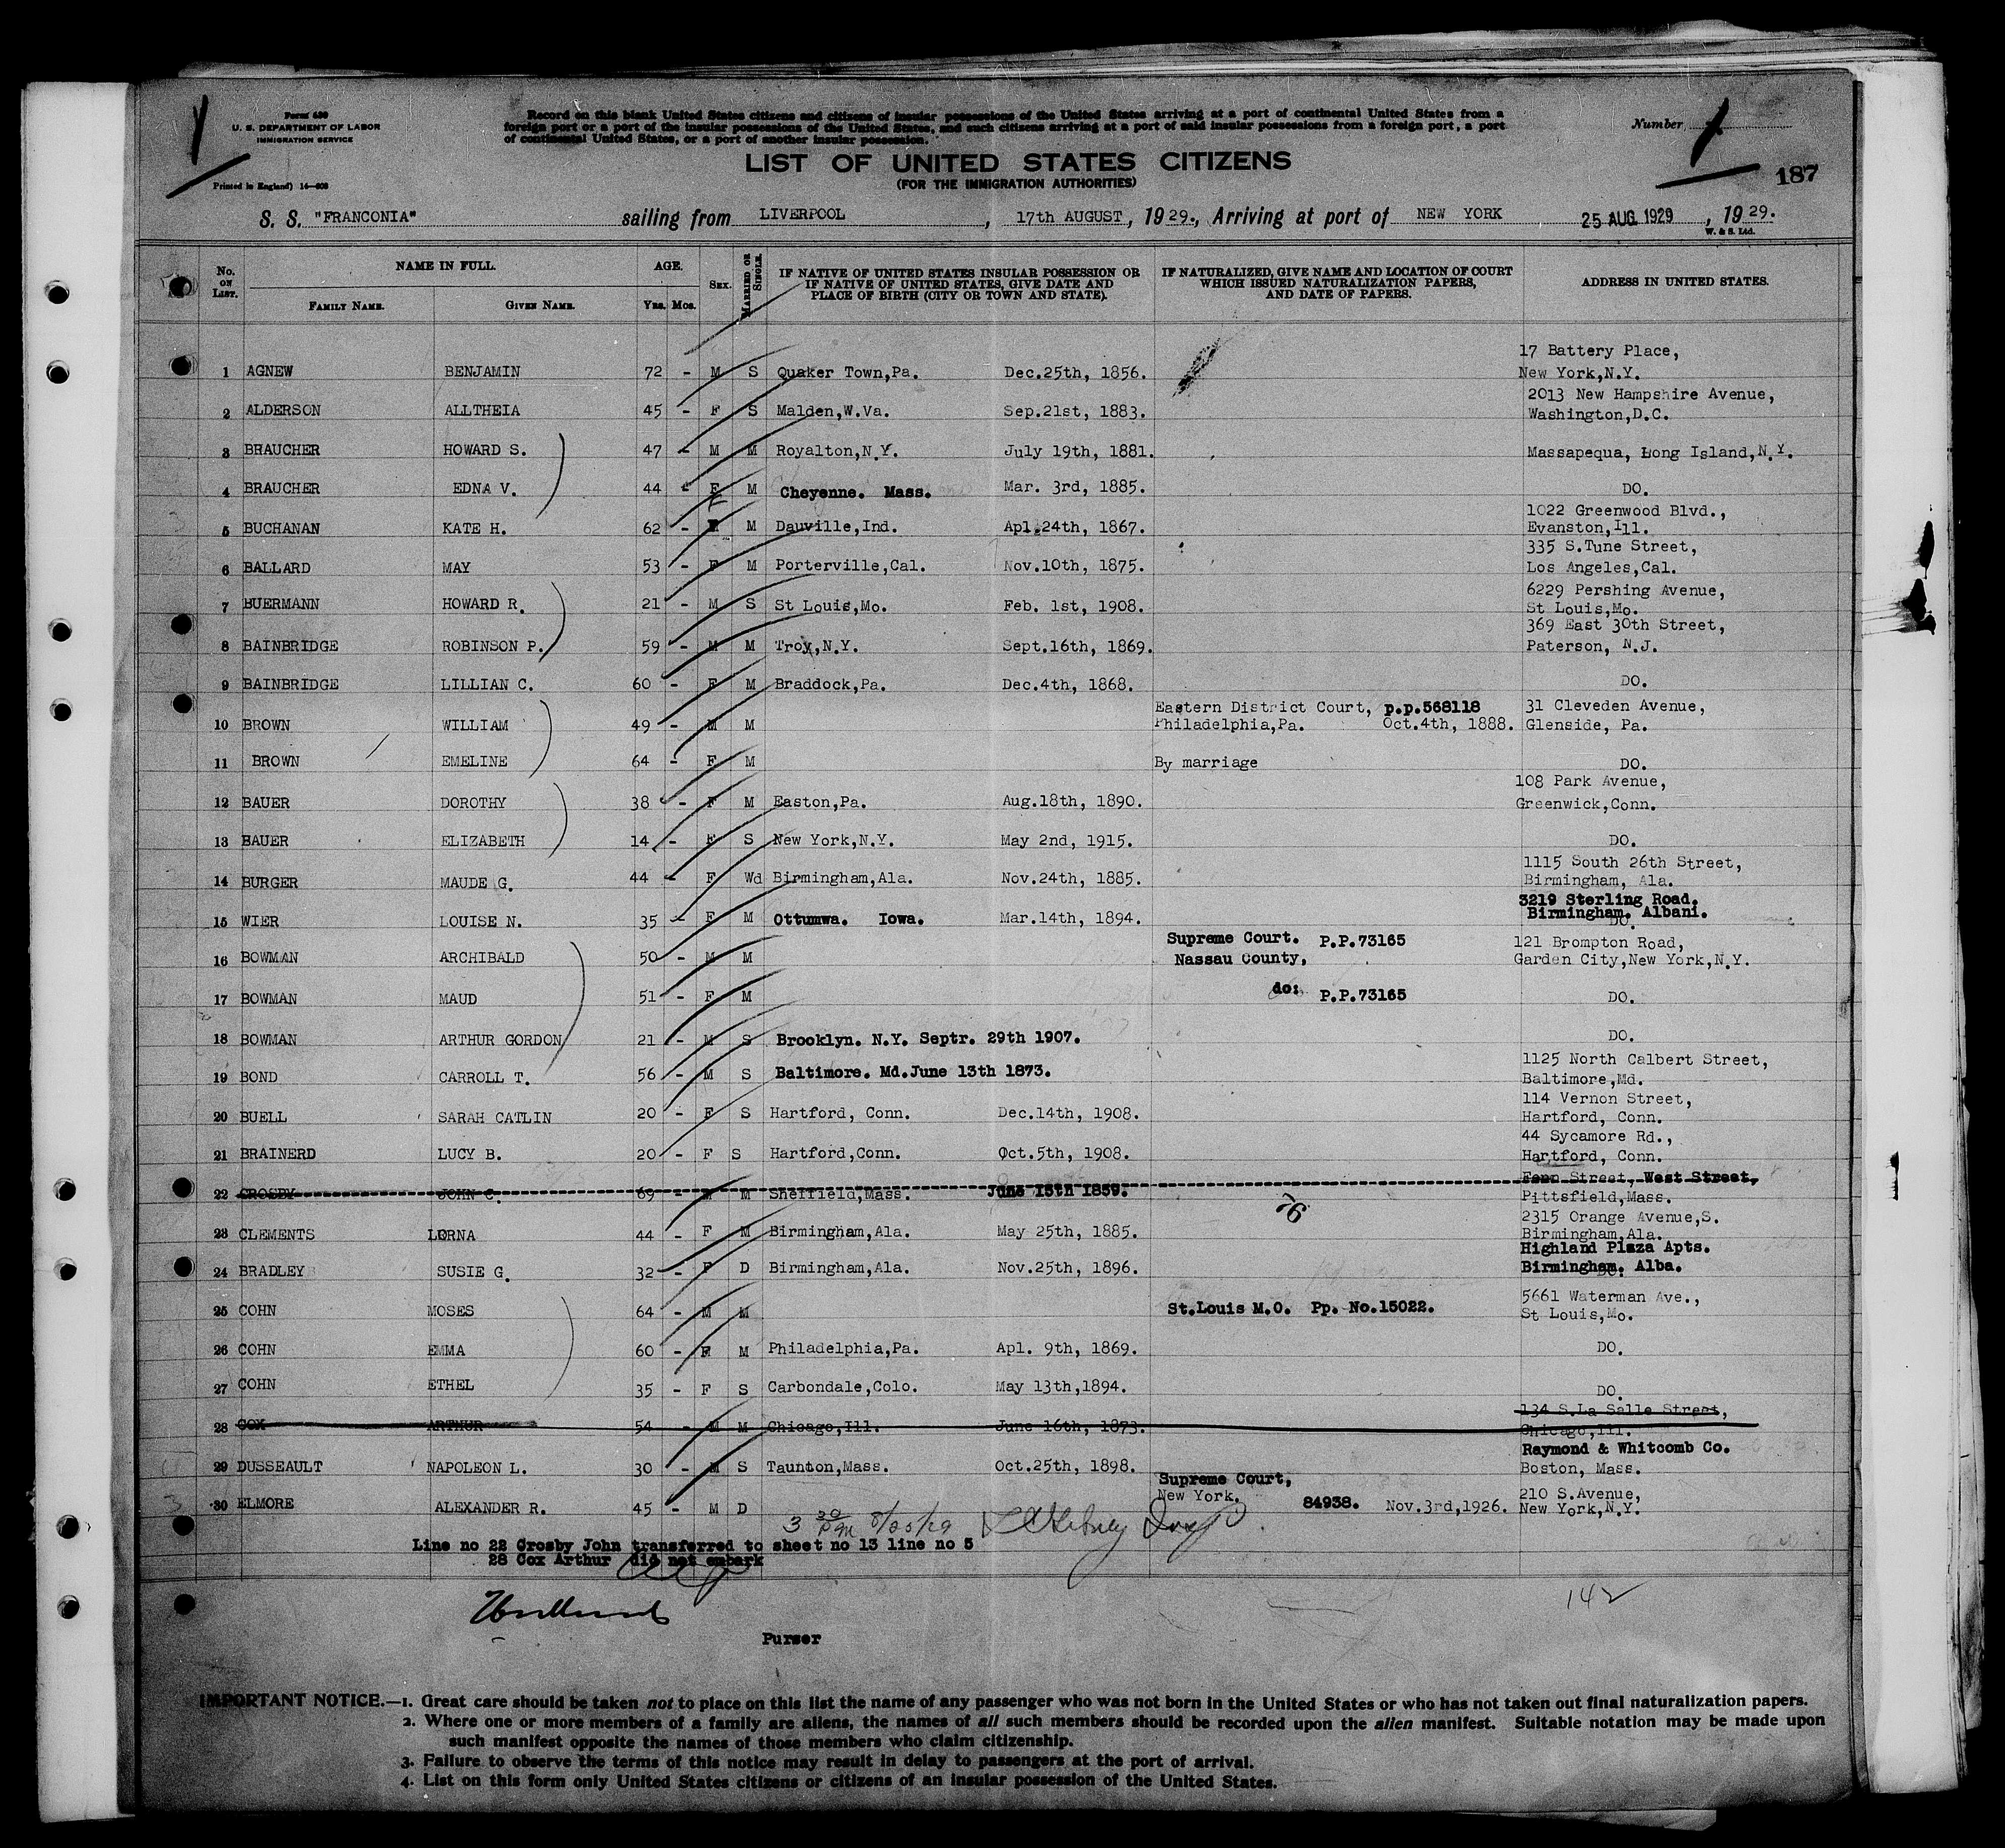 Form 630
U. S. DEPARTMENT OF LABOR
IMMIGRATION SERVICE
Printed in England) 14—608
Record on this blank United States citizens and citizens of insular possessions of the United States arriving at a port of continental United States from a
foreign port or a port of the insular possessions of the United States, and such citizens arriving at a port of said insular possessions from a foreign port, a port
of continental United States, or a port of another insular possession.
Number
187
LIST OF UNITED STATES CITIZENS
(FOR THE IMMIGRATION AUTHORITIES)
S. S. "FRANCONIA" sailing from LIVERPOOL, 17th AUGUST, 1929., Arriving at port of NEW YORK 25 AUG 1929, 1929.
W. & S. Ltd.
No. ON LIST. NAME IN FULL. FAMILY NAME. GIVEN NAME. AGE. YRS. MOS. SEX. MARRIED OR SINGLE. IF NATIVE OF UNITED STATES INSULAR POSSESSION OR IF NATIVE OF UNITED STATES, GIVE DATE AND PLACE OF BIRTH (CITY OR TOWN AND STATE). IF NATURALIZED, GIVE NAME AND LOCATION OF COURT WHICH ISSUED NATURALIZATION PAPERS, AND DATE OF PAPERS. ADDRESS IN UNITED STATES.
17 Battery Place,
1 AGNEW BENJAMIN 72 - M S Quaker Town,Pa. Dec.25th, 1856. New York,N.Y.
2013 New Hampshire Avenue,
2 ALDERSON ALLTHEIA 45 - F S Malden,W.Va. Sep.21st, 1883. Washington,D.C.
3 BRAUCHER HOWARD S. 47 - M M Royalton,N.Y. July 19th, 1881. Massapequa, Long Island,N.Y.
4 BRAUCHER EDNA V. 44 - F M Cheyenne. Mass. Mar. 3rd, 1885. DO.
1022 Greenwood Blvd.,
5 BUCHANAN KATE H. 62 - F M Dauville,Ind. Apl.24th, 1867. Evanston,Ill.
335 S.Tune Street,
6 BALLARD MAY 53 - F M Porterville,Cal. Nov.10th, 1875. Los Angeles,Cal.
6229 Pershing Avenue,
7 BUERMANN HOWARD R. 21 - M S St Louis,Mo. Feb. 1st, 1908. St Louis,Mo.
369 East 30th Street,
8 BAINBRIDGE ROBINSON P. 59 - M M Troy,N.Y. Sept.16th, 1869. Paterson, N.J.
9 BAINBRIDGE LILLIAN C. 60 - F M Braddock,Pa. Dec.4th, 1868. DO.
Eastern District Court, p.p.568118 31 Cleveden Avenue,
10 BROWN WILLIAM 49 - M M Philadelphia,Pa. Oct.4th, 1888. Glenside, Pa.
11 BROWN EMELINE 64 - F M By marriage DO.
108 Park Avenue,
12 BAUER DOROTHY 38 - F M Easton,Pa. Aug.18th, 1890. Greenwick,Conn.
13 BAUER ELIZABETH 14 - F S New York,N.Y. May 2nd, 1915. DO.
1115 South 26th Street,
14 BURGER MAUDE G. 44 - F Wd Birmingham,Ala. Nov.24th, 1885. Birmingham, Ala.
3219 Sterling Road.
15 WIER LOUISE N. 35 - F M Ottumwa. Iowa. Mar.14th, 1894. Birmingham. Albani.
Supreme Court. P.P.73165 121 Brompton Road,
16 BOWMAN ARCHIBALD 50 - M M Nassau County, Garden City,New York,N.Y.
17 BOWMAN MAUD 51 - F M do: P.P.73165 DO.
18 BOWMAN ARTHUR GORDON 21 - M S Brooklyn. N.Y. Septr. 29th 1907. DO.
1125 North Calbert Street,
19 BOND CARROLL T. 56 - M S Baltimore. Md.June 13th 1873. Baltimore,Md.
114 Vernon Street,
20 BUELL SARAH CATLIN 20 - F S Hartford, Conn. Dec.14th, 1908. Hartford, Conn.
44 Sycamore Rd.,
21 BRAINERD LUCY B. 20 - F S Hartford,Conn. Oct.5th, 1908. Hartford, Conn.
Fenn Street, West Street,
22 CROSBY JOHN C. 69 - M M Sheffield,Mass. June 15th 1859. Pittsfield,Mass.
2315 Orange Avenue,S.
23 CLEMENTS LORNA 44 - F M Birmingham,Ala. May 25th, 1885. Birmingham,Ala.
Highland Plaza Apts.
24 BRADLEY SUSIE G. 32 - F D Birmingham,Ala. Nov.25th, 1896. Birmingham. Alba.
5661 Waterman Ave.,
25 COHN MOSES 64 - M M St.Louis M.O. Pp. No.15022. St Louis,Mo.
26 COHN EMMA 60 - F M Philadelphia,Pa. Apl. 9th, 1869. DO.
27 COHN ETHEL 35 - F S Carbondale,Colo. May 13th,1894. DO.
134 S.La Salle Street,
28 COX ARTHUR 54 - M M Chicago,Ill. June 16th, 1873. Chicago,Ill.
Raymond & Whitcomb Co.
29 DUSSEAULT NAPOLEON L. 30 - M S Taunton,Mass. Oct.25th, 1898. Boston, Mass.
Supreme Court,
New York. 210 S.Avenue,
30 ELMORE ALEXANDER R. 45 - M D 84938. Nov.3rd,1926. New York,N.Y.
Line no 22 Crosby John transferred to sheet no 13 line no 5
28 Cox Arthur did not embark
142
Purser
IMPORTANT NOTICE.—1. Great care should be taken not to place on this list the name of any passenger who was not born in the United States or who has not taken out final naturalization papers.
2. Where one or more members of a family are aliens, the names of all such members should be recorded upon the alien manifest. Suitable notation may be made upon
such manifest opposite the names of those members who claim citizenship.
3. Failure to observe the terms of this notice may result in delay to passengers at the port of arrival.
4. List on this form only United States citizens or citizens of an insular possession of the United States.